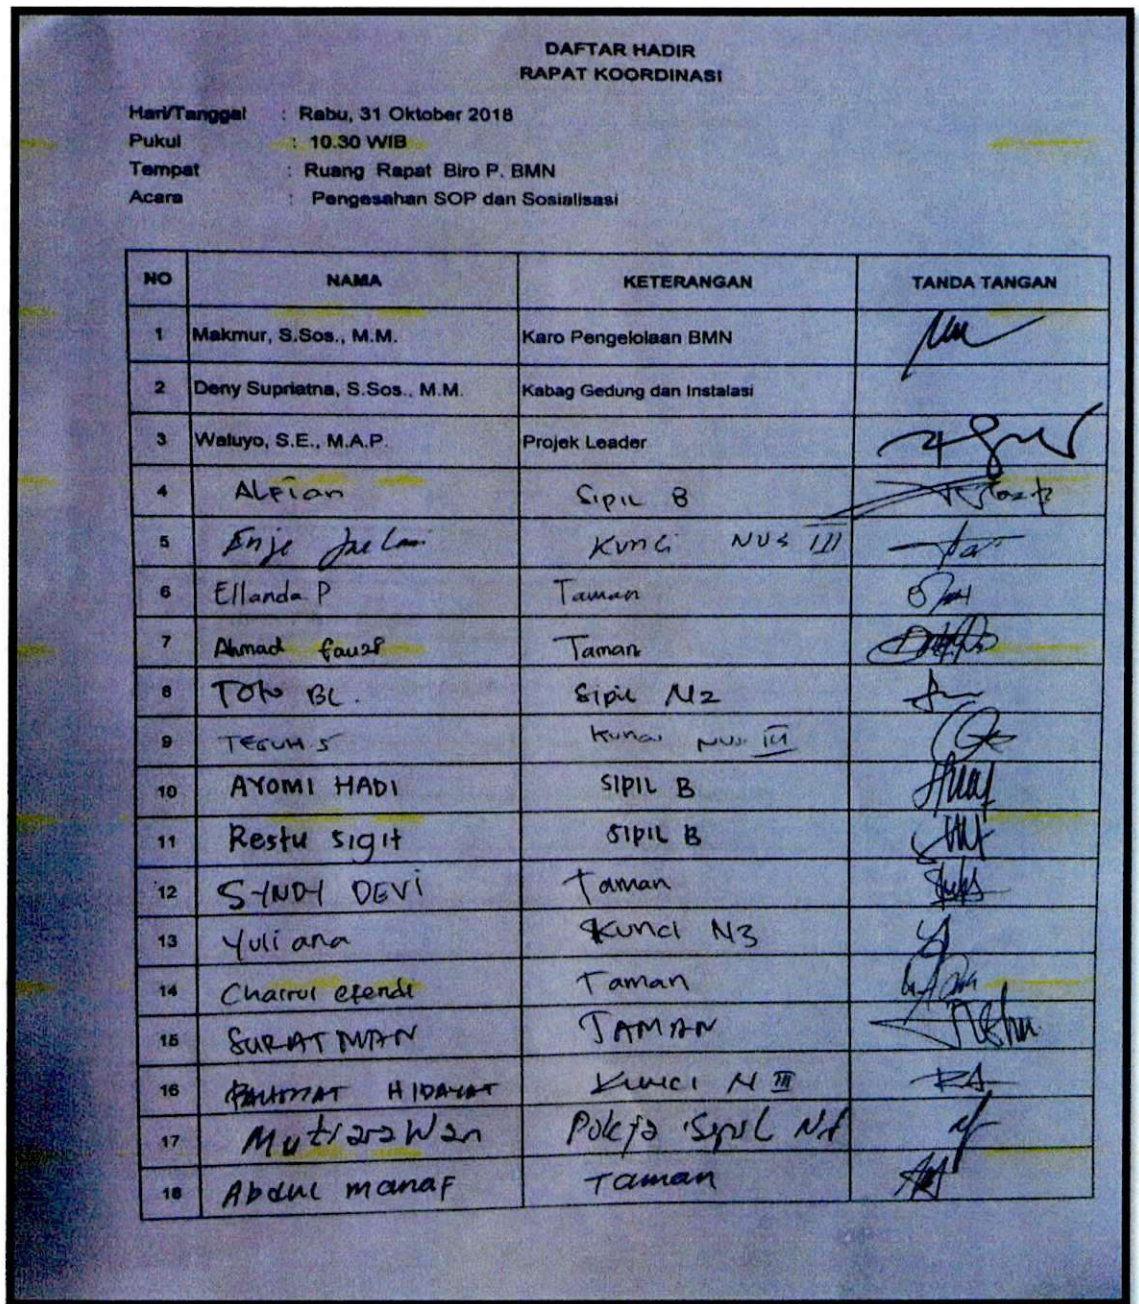 DAFTAR HADIR
RAPAT KOORDINASI
Hari/Tanggal : Rabu, 31 Oktober 2018
Pukul : 10.30 WIB
Tempat : Ruang Rapat Biro P. BMN
Acara : Pengesahan SOP dan Sosialisasi
NO NAMA KETERANGAN TANDA TANGAN
1 Makmur, S.Sos., M.M. Karo Pengelolaan BMN
2 Deny Supriatna, S.Sos., M.M. Kabag Gedung dan Instalasi
3 Waluyo, S.E., M.A.P. Projek Leader
4 Alfian Sipil B
5 Enje Kunci NUS III
6 Ellanda P Taman
7 Ahmad fauzi Taman
8 TOTO BL. Sipil N2
9 TEGUH S Kunci NUS III
10 AYOMI HADI SIPIL B
11 Restu sigit SIPIL B
12 SYNDY DEVI Taman
13 Yuliana Kunci N3
14 Chairul efendi Taman
15 SURATMAN TAMAN
16 RAHMAT HIDAYAT KUNCI N III
17 Mutiarawan Pokja Sipil
18 Abdul manaf Taman